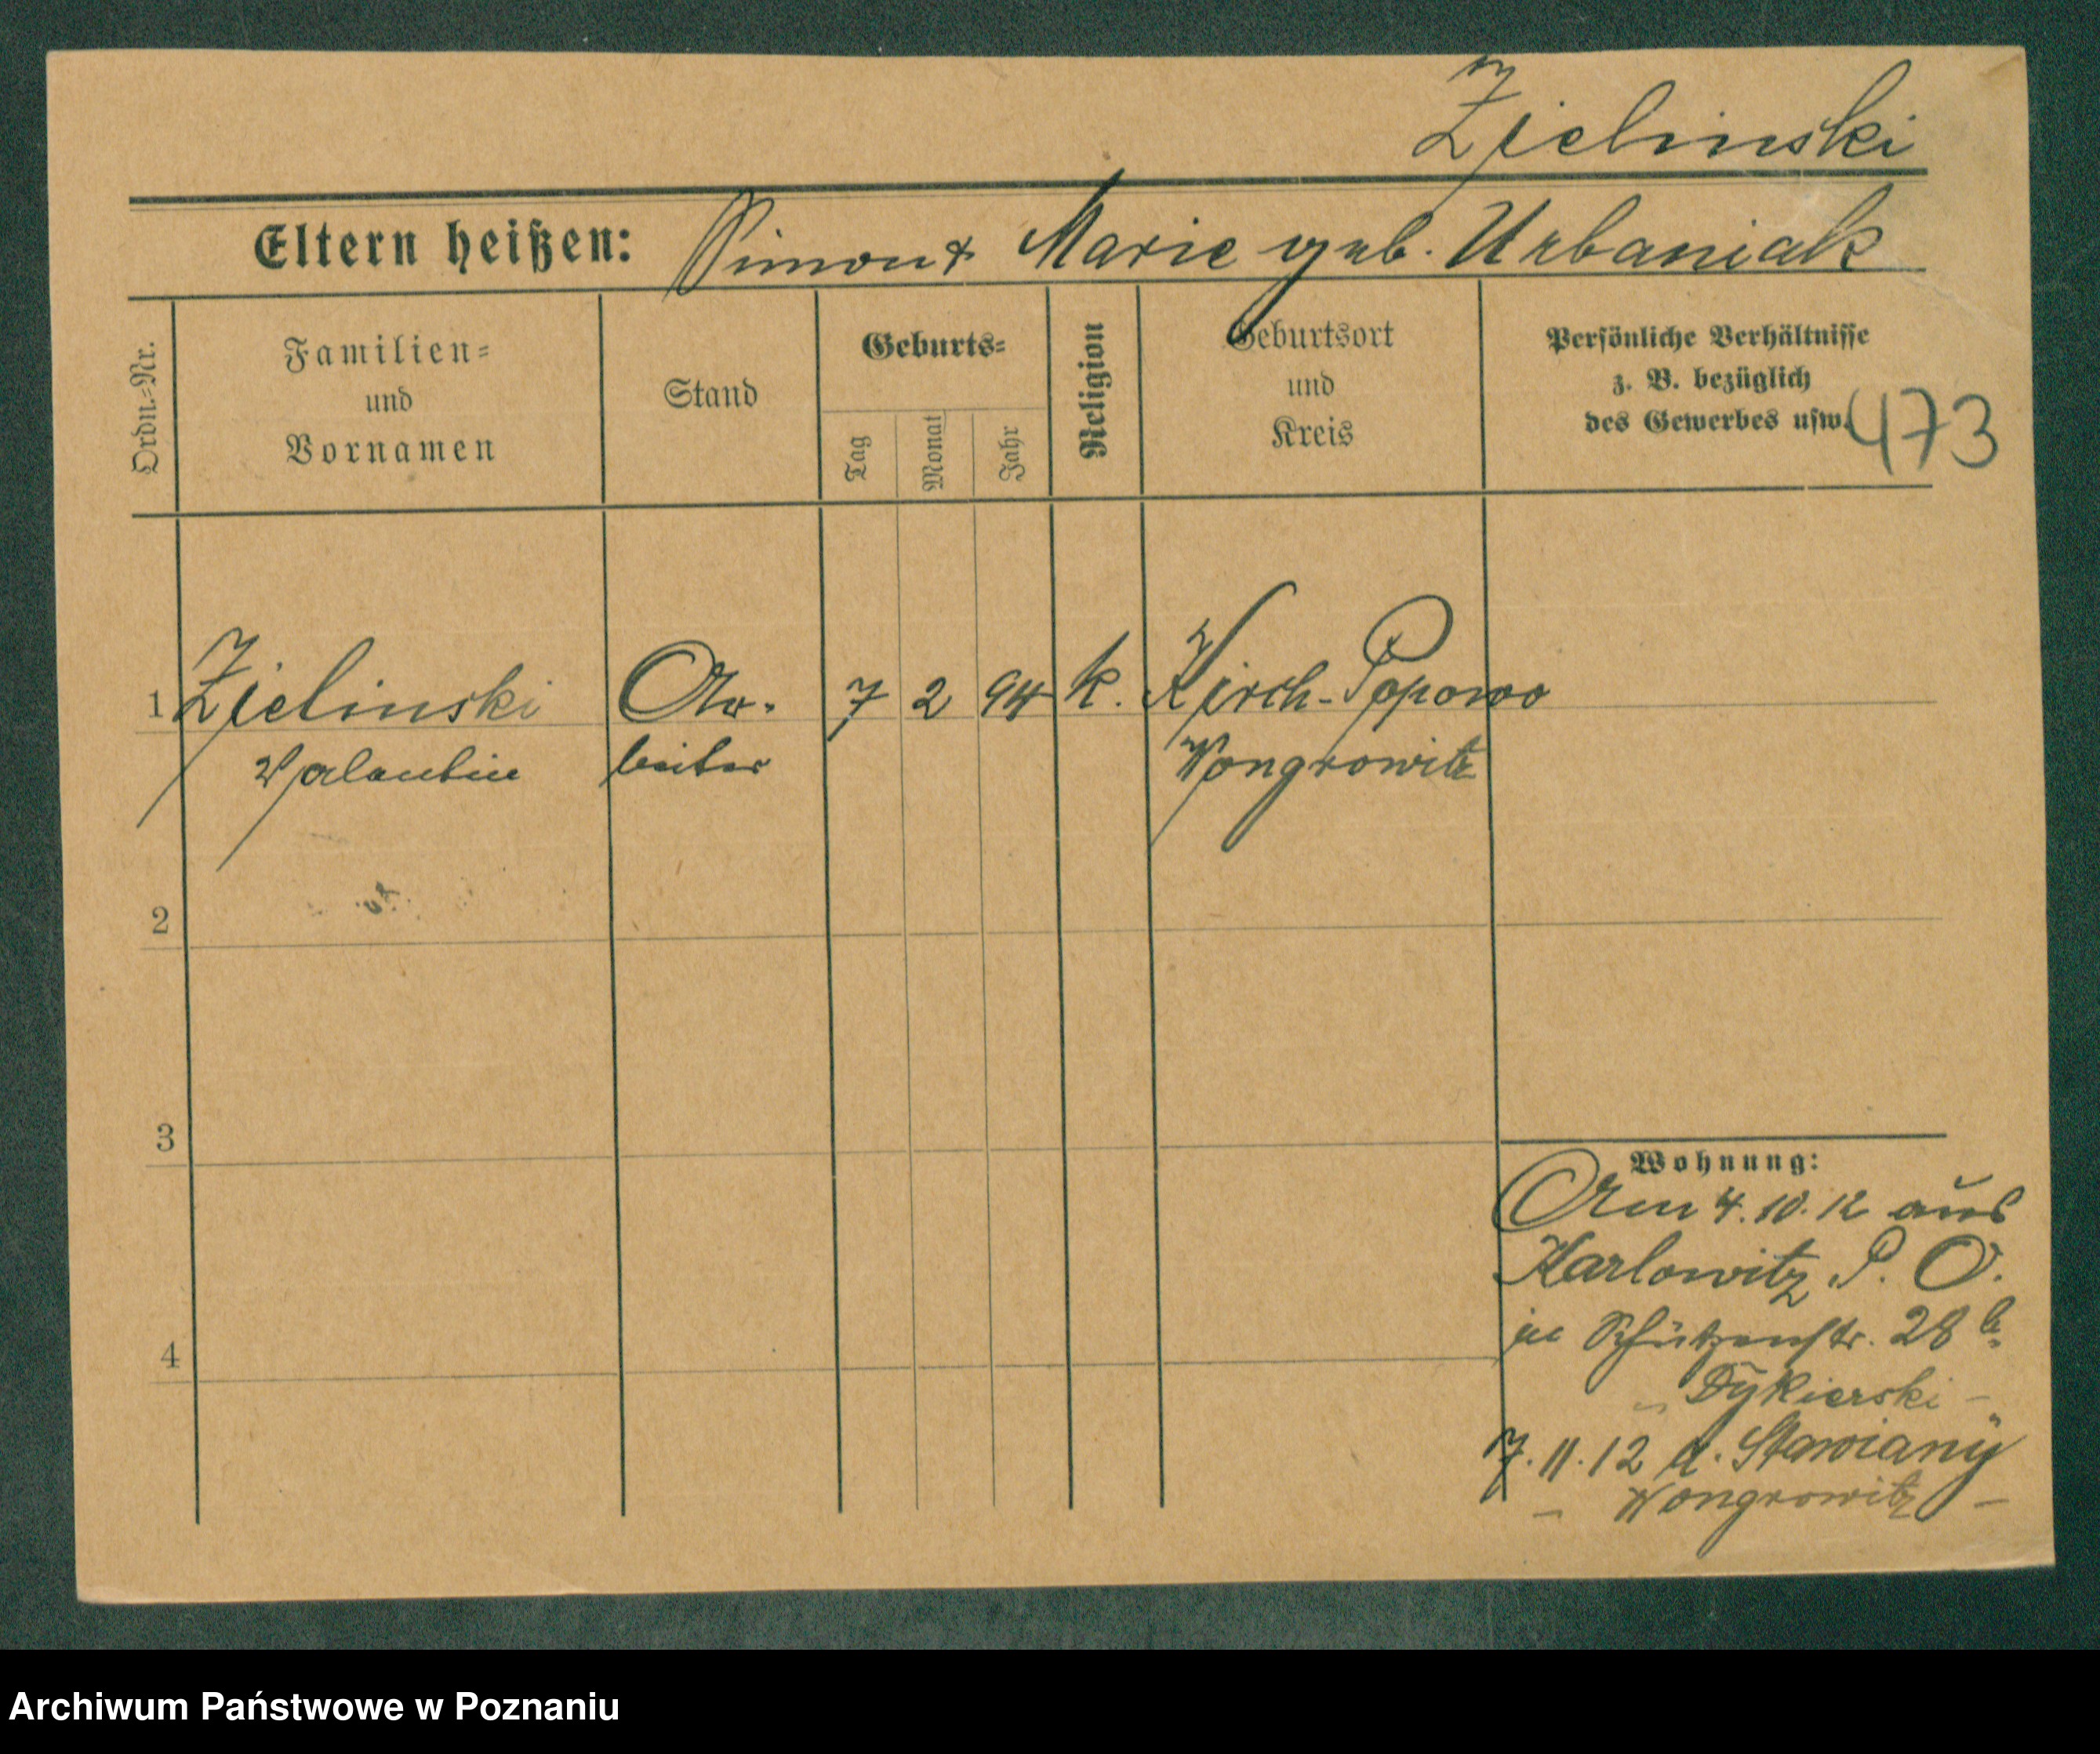 Zielinski
Eltern heißen: Simon & Marie geb. Urbaniak
Ordn.-Nr.
Familien-
und
Vornamen
Stand
Geburts-
Tag
Monat
Jahr
Religion
Geburtsort
und
Kreis
Persönliche Verhältnisse
z. B. bezüglich
des Gewerbes usw.
473
1 Zielinski Ar- 7 2 94 k. Kirch-Popowo
Valentin beiter Wongrowitz
2
3
4
Wohnung:
Am 4.10.12 aus
Karlowitz P. O.
in Schützenstr. 28 b.
Dykierski -
7.11.12 n. Stawiany
- Wongrowitz -
Archiwum Państwowe w Poznaniu